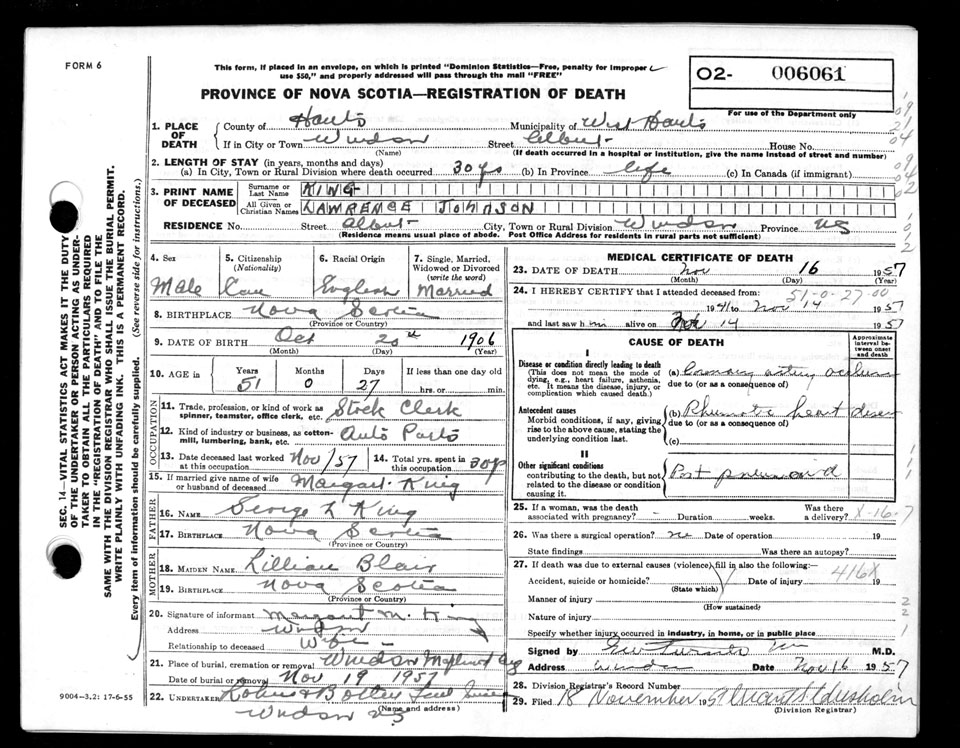 FORM 6
This form, if placed in an envelope, on which is printed "Dominion Statistics—Free, penalty for improper
use $50," and properly addressed will pass through the mail "FREE"
PROVINCE OF NOVA SCOTIA—REGISTRATION OF DEATH
02- 006061
For use of the Department only
1. PLACE OF DEATH
County of Hants Municipality of West Hants
If in City or Town Windsor Street Albert House No.
(Name) (If death occurred in a hospital or institution, give the name instead of street and number)
2. LENGTH OF STAY (in years, months and days)
(a) In City, Town or Rural Division where death occurred 30 yrs (b) In Province life (c) In Canada (if immigrant)
3. PRINT NAME OF DECEASED
Surname or Last Name KING
All Given or Christian Names LAWRENCE JOHNSON
RESIDENCE No. Street Albert City, Town or Rural Division Windsor Province NS
(Residence means usual place of abode. Post Office Address for residents in rural parts not sufficient)
4. Sex
Male
5. Citizenship
(Nationality)
Can
6. Racial Origin
English
7. Single, Married,
Widowed or Divorced
(write the word)
Married
8. BIRTHPLACE Nova Scotia
(Province or Country)
9. DATE OF BIRTH Oct 20th 1906
(Month) (Day) (Year)
10. AGE in
Years Months Days If less than one day old
51 0 27 hrs. or min.
OCCUPATION
11. Trade, profession, or kind of work as
spinner, teamster, office clerk, etc. Stock Clerk
12. Kind of industry or business, as cotton-
mill, lumbering, bank, etc. Auto Parts
13. Date deceased last worked
at this occupation Nov/57
14. Total yrs. spent in
this occupation 30 yr
15. If married give name of wife
or husband of deceased Margaret King
FATHER
16. NAME George L King
17. BIRTHPLACE Nova Scotia
(Province or Country)
MOTHER
18. MAIDEN NAME Lillian Blair
19. BIRTHPLACE Nova Scotia
(Province or Country)
20. Signature of informant Margaret M. King
Address Windsor
Relationship to deceased Wife
21. Place of burial, cremation or removal Windsor
Date of burial or removal Nov 19 1957
22. UNDERTAKER
Windsor NS
(Name and address)
9004—3,2: 17-6-55
SEC. 14—VITAL STATISTICS ACT MAKES IT THE DUTY
OF THE UNDERTAKER OR PERSON ACTING AS UNDER-
TAKER TO OBTAIN ALL THE PARTICULARS REQUIRED
IN THE "REGISTRATION OF DEATH" AND TO FILE THE
SAME WITH THE DIVISION REGISTRAR WHO SHALL ISSUE THE BURIAL PERMIT.
WRITE PLAINLY WITH UNFADING INK. THIS IS A PERMANENT RECORD.
Every item of information should be carefully supplied. (See reverse side for instructions.)
MEDICAL CERTIFICATE OF DEATH
23. DATE OF DEATH Nov 16 1957
24. I HEREBY CERTIFY that I attended deceased from:
51-0-27-00
1941 to Nov 14 1957
and last saw him alive on 14 1957
CAUSE OF DEATH
Approximate interval between onset and death
I
Disease or condition directly leading to death
(This does not mean the mode of
dying, e.g., heart failure, asthenia,
etc. It means the disease, injury, or
complication which caused death.)
(a) Coronary artery occlusion
due to (or as a consequence of)
Antecedent causes
Morbid conditions, if any, giving
rise to the above cause, stating the
underlying condition last.
(b) Rheumatic heart disease
due to (or as a consequence of)
(c)
II
Other significant conditions
contributing to the death, but not
related to the disease or condition
causing it.
Post
25. If a woman, was the death
associated with pregnancy? - Duration weeks. Was there
a delivery? X-16-7
26. Was there a surgical operation? no Date of operation 19
State findings Was there an autopsy?
27. If death was due to external causes (violence) fill in also the following:
416X
Accident, suicide or homicide? Date of injury 19
(State which)
Manner of injury
(How sustained)
Nature of injury
Specify whether injury occurred in industry, in home, or in public place
Signed by M.D.
Address Windsor Date Nov 16 1957
28. Division Registrar's Record Number
29. Filed 18 November 1957
(Division Registrar)